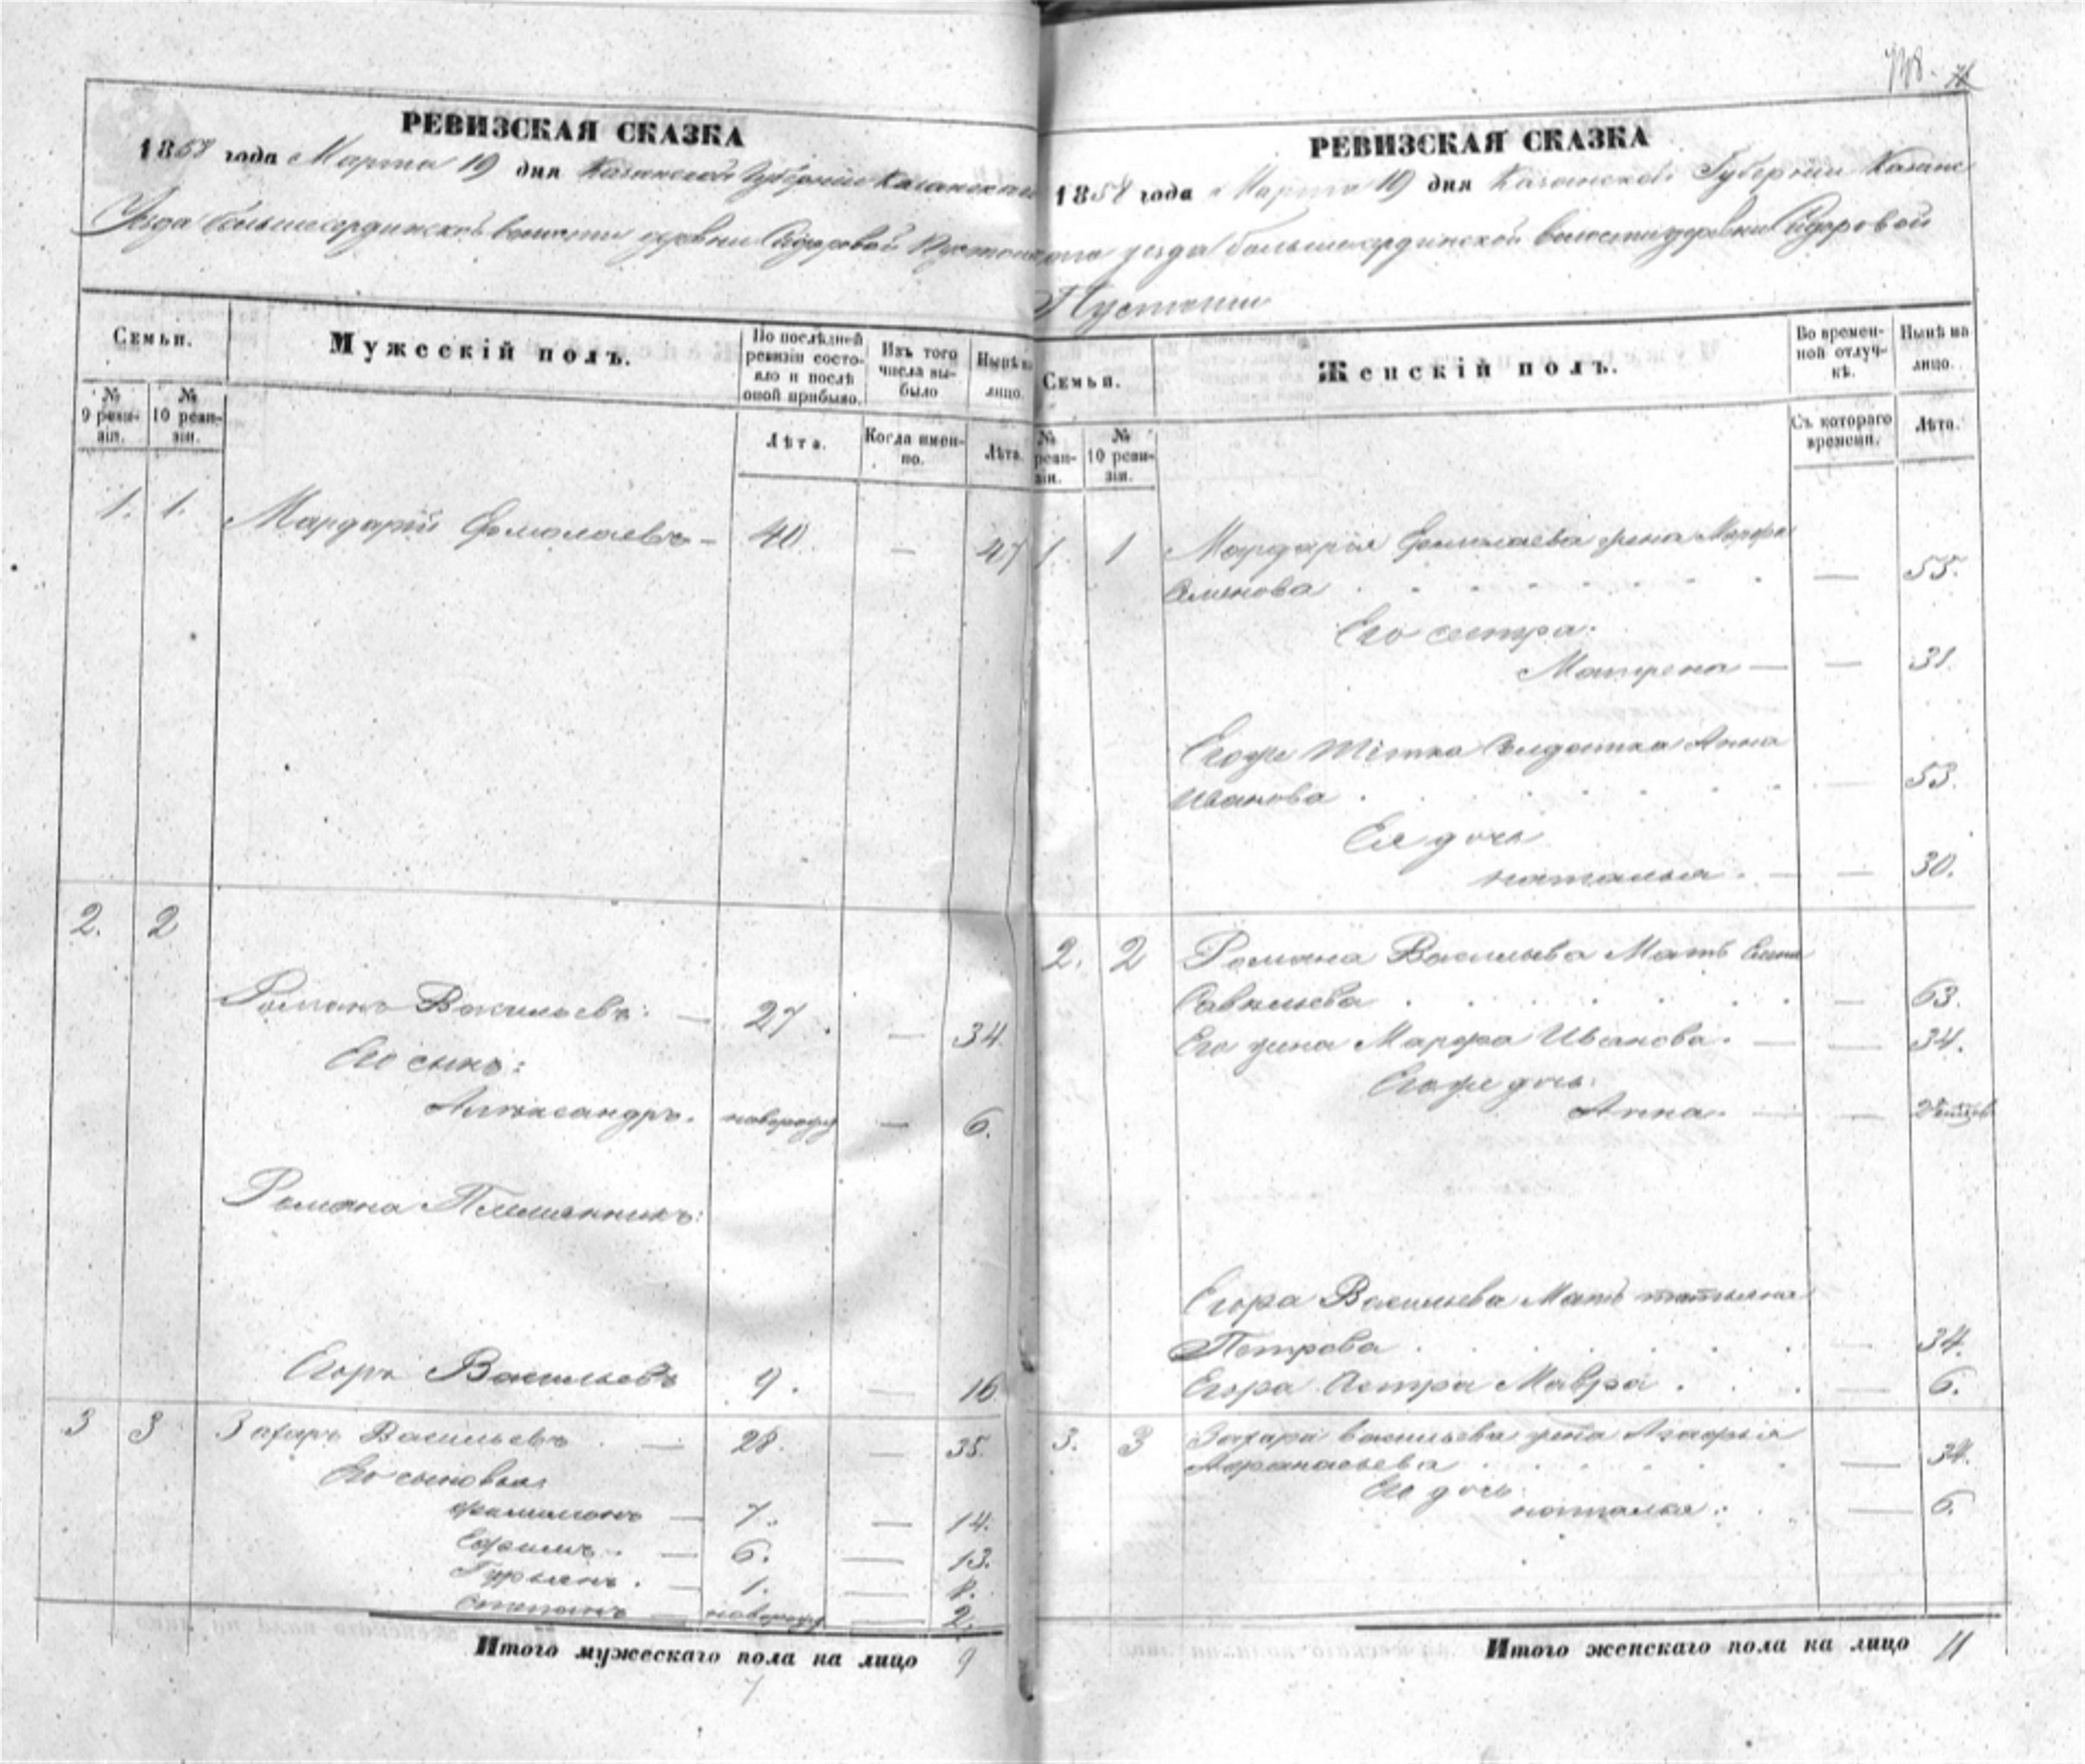 738.
РЕВИЗСКАЯ СКАЗКА
1858 года Марта 19 дня Казанской Губернии Казанскаго
Уезда большесердинской волости деревни Сидоровой Пустоши
Семьи.
Мужескій полъ.
По послѣдней ревизіи состояло и послѣ оной прибыло.
Изъ того числа выбыло
Нынѣ на лицо.
№ 9 ревизіи.
№ 10 ревизіи.
Лѣта.
Когда именно.
Лѣта.
1. 1. Мардарій Ермолаевъ – 40 — 47
2. 2
Романъ Васильевъ: — 27. — 34
Его сынъ:
Александръ. новорожд — 6.
Романа Племянникъ:
Егоръ Васильевъ 9. — 16
3 3 Захаръ Васильевъ — 28. — 35.
Его сыновья:
Филимонъ — 7. — 14.
Ефимъ. — 6. — 13.
Гурьянъ. — 1. — 8.
Степанъ — новорожд — 2.
Итого мужескаго пола на лицо 9
РЕВИЗСКАЯ СКАЗКА
1858 года Марта 19 дня Казанской Губернии Казанс
каго уезда большесердинской волости деревни Сидоровой
Пустоши
Семьи.
Женскій полъ.
Во временной отлучкѣ.
Нынѣ на лицо.
№ ревизіи.
№ 10 ревизіи.
Съ котораго времени.
Лѣта.
1. 1 Мардарія Ермолаева жена Марфа
Семенова — 55.
Его сестра.
Матрена — — 31.
Егоже тѣтка Солдатка Анна
Иванова — 53.
Ея дочь
наталья. — — 30.
2. 2 Романа Васильева Мать Елена
Савельева — 63.
Его жена Марфа Иванова. — — 34.
Егоже дочь:
Анна. — —
Егора Васильева Мать татьяна
Петрова — 34.
Егора Сестра Мавра — 6.
3. 3 Захара васильева жена Агафья
Афанасьева — 34.
Его дочь:
наталья: — 6.
Итого женскаго пола на лицо 11